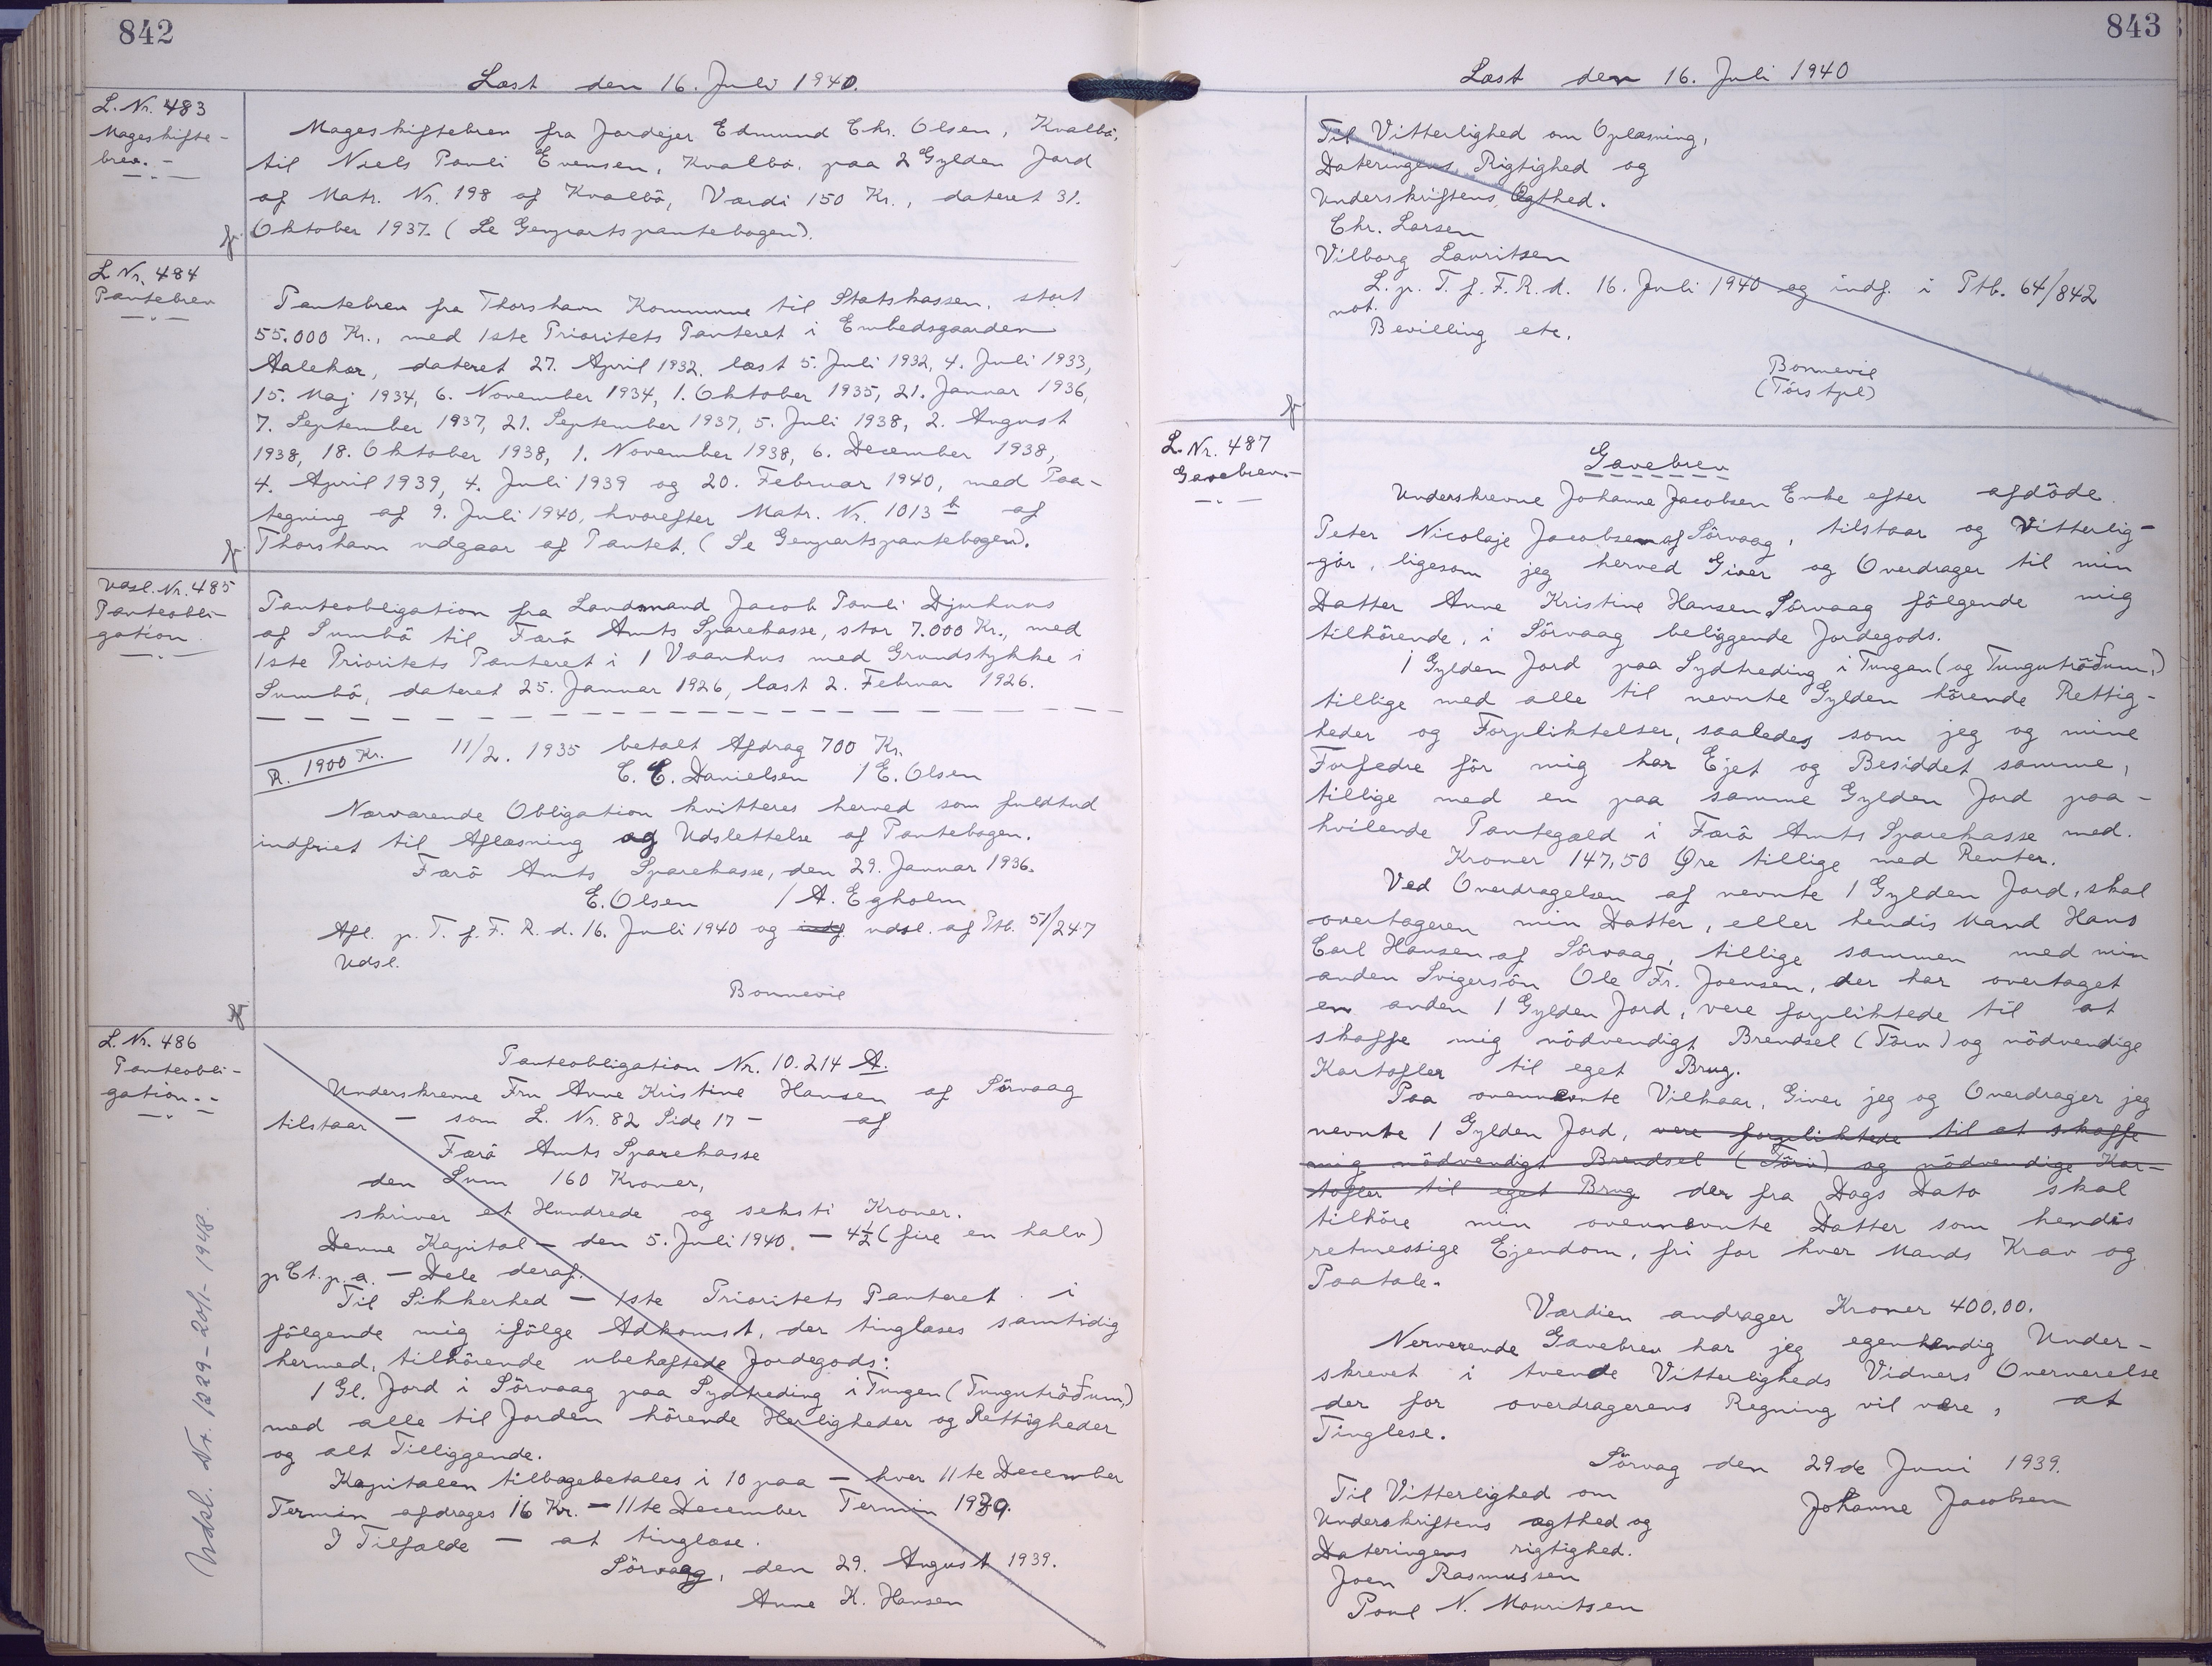 842
Læst den 16. Juli 1940.
L. Nr. 483
Mageskifte-
brev. -
Mageskiftebrev fra Jordejer Edmund Chr. Olsen, Kvalbö,
til Niels Pauli Evensen, Kvalbö. paa 2 Gylden Jord
af Matr. Nr. 198 af Kvalbö, Værdi 150 Kr., dateret 31.
Oktober 1937. (Se Genpartspantebogen).
L Nr. 484
Pantebrev
Pantebrev fra Thorshavn Kommune til Statskassen, stort
55.000 Kr., med 1ste Prioritets Panteret i Embedsgaarden
Aaleker, dateret 27. April 1932, læst 5. Juli 1932, 4. Juli 1933,
15. Maj 1934, 6. November 1934, 1. Oktober 1935, 21. Januar 1936,
7. September 1937, 21. September 1937, 5. Juli 1938, 2. August
1938, 18. Oktober 1938, 1. November 1938, 6. December 1938,
4. April 1939, 4. Juli 1939 og 20. Februar 1940, med Paa-
tegning af 9. Juli 1940, hvorefter Matr. Nr. 1013 b af
Thorshavn udgaar af Pantet. (Se Genpartspantebogen).
Udsl. Nr. 485
Panteobli-
gation.
Panteobligation fra Landsmand Jacob Pauli Djurhuus
af Sumbö til Færö Amts Sparekasse, stor 7.000 Kr., med
1ste Prioritets Panteret i 1 Vaanhus med Grundstykke i
Sumbö, dateret 25. Januar 1926, læst 2. Februar 1926.
R. 1900 Kr.
11/2. 1935 betalt Afdrag 700 Kr.
C. E. Danielsen / E. Olsen
Nærværende Obligation kvitteres herved som fuldtud
indfriet til Aflæsning og Udslettelse af Pantebogen.
Færö Amts Sparekasse, den 29. Januar 1936.
E. Olsen / A. Egholm
Afl. p. T. f. F. R. d. 16. Juli 1940 og indf. udsl. af Ptb. 51/247
Udsl.
Bonnevie
L. Nr. 486
Panteobli-
gation. -
Panteobligation Nr. 10.214 A.
Underskrevne Fru Anne Kristine Hansen af Sörvaag
tilstaar - som L. Nr. 82 Side 17 - af
Færö Amts Sparekasse
den Sum 160 Kroner,
skriver et Hundrede og seksti Kroner.
Denne Kapital - den 5. Juli 1940. - 4½ (fire en halv)
p Ct. p. a. - Dele deraf.
Til Sikkerhed - 1ste Prioritets Panteret i
fölgende mig ifölge Adkomst, der tinglæses samtidig
hermed, tilhörende ubehæftede Jordegods:
1 Gl. Jord i Sörvaag paa Sydtreding i Tungen (Tungutröðum,)
med alle til Jorden hörende Herligheder og Rettigheder
og alt Tilliggende.
Kapitalen tilbagebetales i 10 paa - hver 11te December
Termin afdrages 16 Kr. - 11te December Termin 1939.
I Tilfælde - at tinglæse.
Sörvaag, den 29. August 1939.
Anne K. Hansen
Udsl. Nr. 1229-20/1-1948.
843
Læst den 16. Juli 1940
Til Vitterlighed om Oplæsning,
Dateringens Rigtighed og
Underskriftens Ægthed.
Chr. Larsen
Vilborg Lauritsen
L. p. T. f. F. R. d. 16. Juli 1940 og indf. i Ptb. 64/842
not.
Bevilling etc.
Bonnevie
(Törs tpl)
L. Nr. 487
Gavebrev. -
Gavebrev
Underskrevne Johanne Jacobsen Enke efter afdöde
Peter Nicolaje Jacobsen af Sörvaag, tilstaar og Vitterlig-
gör, ligesom jeg herved Giver og Overdrager til min
Datter Anne Kristine Hansen Sörvaag fölgende mig
tilhörende, i Sörvaag beliggende Jordegods.
1 Gylden Jord paa Sydtreding i Tungan (og Tungutröðum,)
tillige med alle til nevnte Gylden hörende Rettig-
heder og Forpliktelser, saaledes som jeg og mine
Forfedre för mig har Ejet og Besiddet samme,
tillige med en paa samme Gylden Jord paa-
hvilende Pantegæld i Færö Amts Sparekasse med.
Kroner 147,50 Øre tillige med Renter.
Ved Overdragelsen af nevnte 1 Gylden Jord, skal
overtageren min Datter, eller hendis Mand Hans
Carl Hansen af Sörvaag, tillige sammen med min
anden Svigersön Ole Fr. Joensen, der har overtaget
en anden 1 Gylden Jord, vere forpliktede til at
skaffe mig nödvendigt Brendsel (Törv) og nödvendige
Kartofler til eget Brug.
Paa ovennevnte Vilkaar, Giver jeg og Overdrager jeg
nevnte 1 Gylden Jord, vere forpliktede til at skaffe
mig nödvendigt Brendsel (Törv) og nödvendige Kar-
tofler til eget Brug der fra Dags Dato skal
tilhöre min ovennevnte Datter som hendis
retmessige Ejendom, fri for hver Mands Krav og
Paatale.
Værdien andrager Kroner 400,00.
Nerverende Gavebrev har jeg egenhendig Under-
skrevet i tvende Vitterligheds Vidners Oververelse
der for overdragerens Regning vil være, at
Tinglese.
Sörvag den 29de Juni 1939.
Til Vitterlighed om
Johanne Jacobsen
Underskriftens ægthed og
Dateringens rigtighed.
Joen Rasmussen
Poul N. Mouritsen